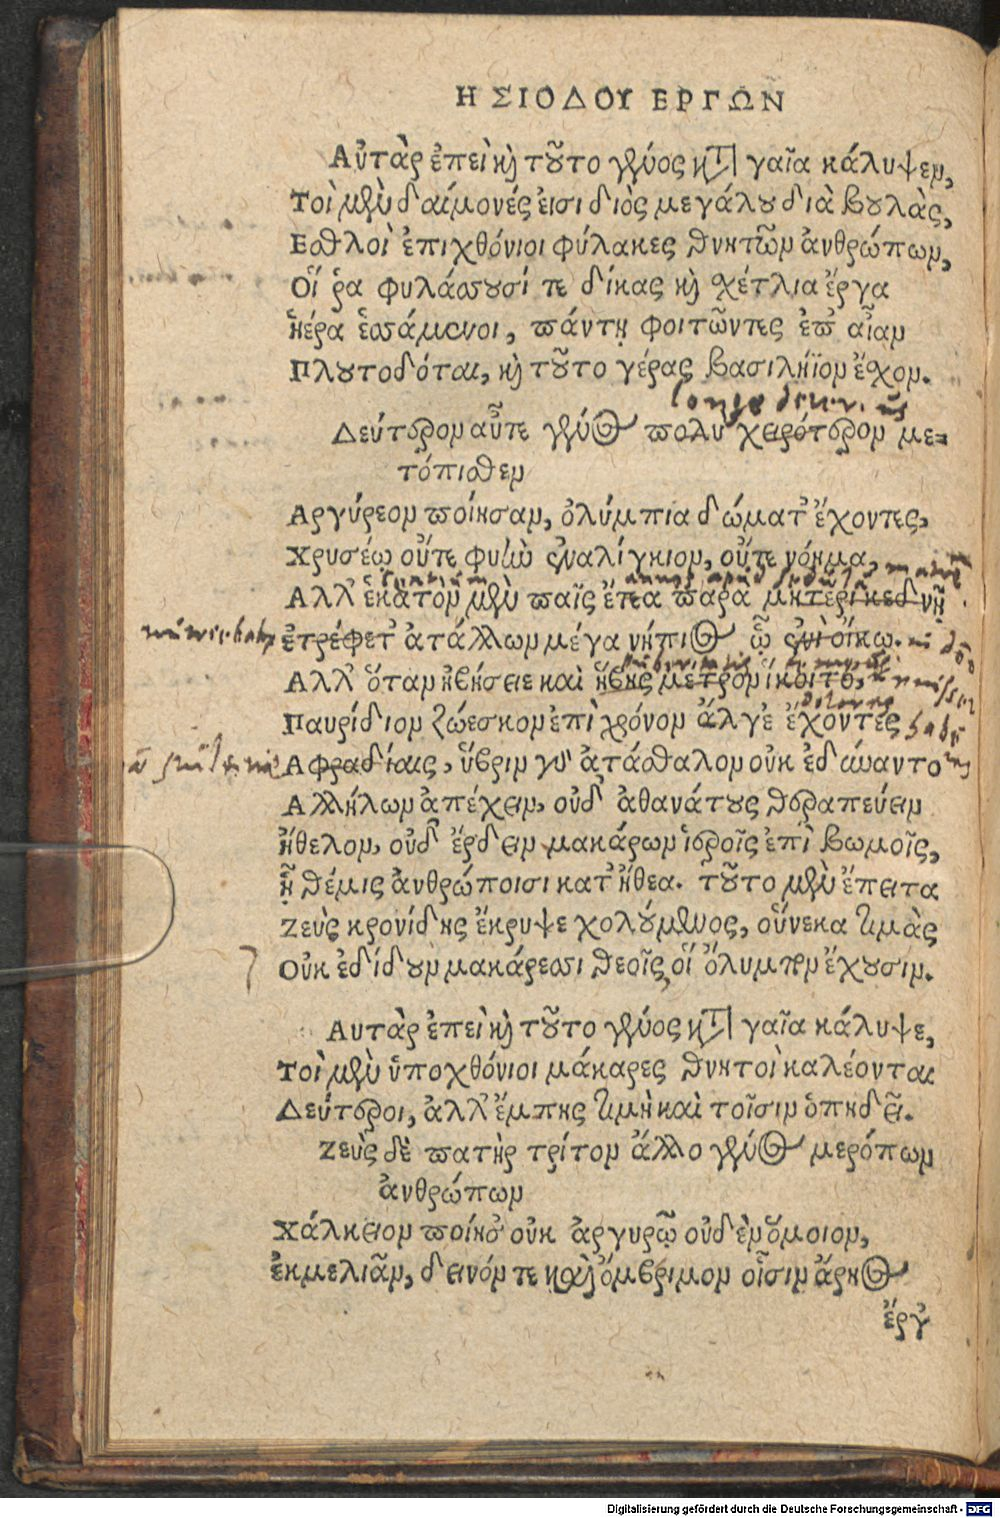 ΗΣΙΟΔΟΥ ΕΡΓΩΝ
Αὐτὰρ ἐπεὶ κὴ τοῦτο γένος κτ γαῖα κάλυψεν,
Τοὶ μὲν δαίμονές εἰσι διὸς μεγάλου διὰ βουλὰς,
Εσθλοὶ ἐπιχθόνιοι φύλακες θνητῶν ἀνθρώπων,
Οἵ ῥα φυλάσσουσί τε δίκας κὴ σχέτλια ἔργα
ἠέρα ἑσσάμενοι, πάντῃ φοιτῶντες ἐπ' αἶαν
Πλουτοδόται, κὴ τοῦτο γέρας βασιλήϊον ἔσχον.
Δεύτερον αὖτε γένος πολὺ χειρότερον με-
τόπισθεν
Αργύρεον ποίησαν, ὀλύμπια δώματ' ἔχοντες,
Χρυσέῳ οὔτε φυὴν ἐναλίγκιον, οὔτε νόημα,
Αλλ' ἑκατὸν μὲν παῖς ἔτεα παρὰ μητέρι κεδνῇ
ἐτρέφετ' ἀτάλλων μέγα νήπιος ᾧ ἐνὶ οἴκῳ.
Αλλ' ὅταν ἡβήσειε καὶ ἥβης μέτρον ἵκοιτο,
Παυρίδιον ζώεσκον ἐπὶ χρόνον ἄλγε' ἔχοντες
Αφραδίαις, ὕβριν γὰρ ἀτάσθαλον οὐκ ἐδύναντο
Αλλήλων ἀπέχειν, οὐδ' ἀθανάτους θεραπεύειν
ἤθελον, οὐδ' ἔρδειν μακάρων ἱεροῖς ἐπὶ βωμοῖς,
ᾗ θέμις ἀνθρώποισι κατ' ἤθεα. τοῦτο μὲν ἔπειτα
Ζεὺς κρονίδης ἔκρυψε χολούμενος, οὕνεκα τιμὰς
Οὐκ ἐδίδουν μακάρεσσι θεοῖς, οἳ ὄλυμπον ἔχουσιν.
Αυτὰρ ἐπεὶ κὴ τοῦτο γένος κτ γαῖα κάλυψε,
Τοὶ μὲν ὑποχθόνιοι μάκαρες θνητοὶ καλέονται
Δεύτεροι, ἀλλ' ἔμπης τιμὴ καὶ τοῖσιν ὀπηδεῖ.
Ζεὺς δὲ πατὴρ τρίτον ἄλλο γένος μερόπων
ἀνθρώπων
Χάλκειον ποίησ' οὐκ ἀργυρῷ οὐδὲν ὅμοιον,
ἐκ μελιᾶν, δεινόν τε καὶ ὄμβριμον οἷσιν ἄρηος
ἔργ'
Digitalisierung gefördert durch die Deutsche Forschungsgemeinschaft - DFG